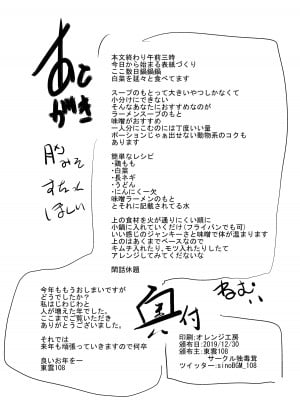 あとがき
本文終わり午前三時
今日から始まる表紙づくり
ここ数日鍋鍋鍋
白菜を延々と食べてます
スープのもとって大きいやつしかなくて
小分けにできない
そんなあなたにおすすめなのが
ラーメンスープのもと
味噌がおすすめ
一人分にこむのには丁度いい量
ポーションじゃぁ出せない動物系のコクも
あります
簡単なレシピ
・鶏もも
・白菜
・長ネギ
・うどん
・にんにく一欠
味噌ラーメンのもと
とそれに記載されてる水
上の食材を火が通りにくい順に
小鍋に入れていくだけ(フライパンでも可)
いい感じのジャンキーさと味噌で体が温まります
上のはあくまでベースなので
キムチ入れたり、モツ入れたりしたて
アレンジしてみてくだないな
閑話休題
ほしい
今年ももうおしまいですが
どうでしたか?
私はじわじわと
人が増えた年でした。
ここまでご覧いただき
ありがとうございました。
それでは
来年も頑張っていきますので何卒
良いお年をー
東雲108
ねむい
奥付
印刷:オレンジ工房
頒布日:2019/12/30
頒布主:東雲108
サークル独毒茸
ツイッター:sinoBGM_108